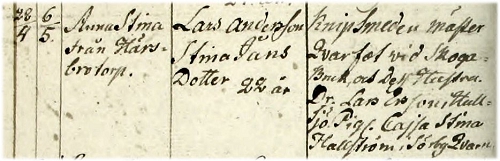 28/4 6/5. Anna Stina
från Härs-
brotorp.
Lars Anderson
Stina Jans
Dotter 22 år
Knipsmeden mäster
Qvarfot vid Skoga-
Bruk, och Dess Hustru.
Dr. Lars Erson i Hult-
sjö Pig. Cajsa Stina
Hallström i Sörby Qvarn.